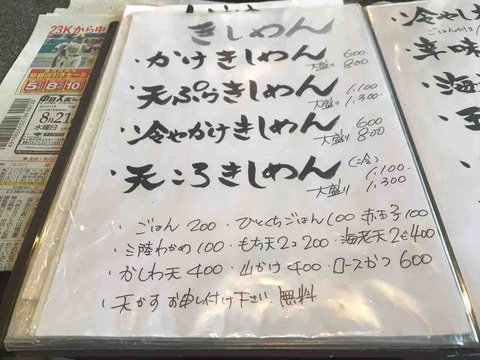 きしめん
・かけきしめん 600
大盛り 800
・天ぷらきしめん 1,100
大盛り 1,300
・冷やかけきしめん 600
大盛り 800
・天ころきしめん (冷) 1,100
大盛り 1,300
・ごはん 200 ・ひとくちごはん 100 赤玉子 100
・三陸わかめ 100 ・もち天2コ 200 ・海老天2ヶ 400
・かしわ天 400 ・山かけ 400 ・ロースかつ 600
・天かす お申し付け下さい 無料
・冷やし
・辛味
・海
23Kから中
8月21
水曜日